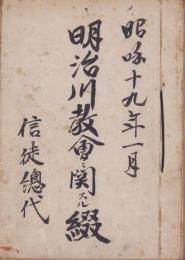 昭和十九年一月
明治川教會ニ関スル綴
信徒總代